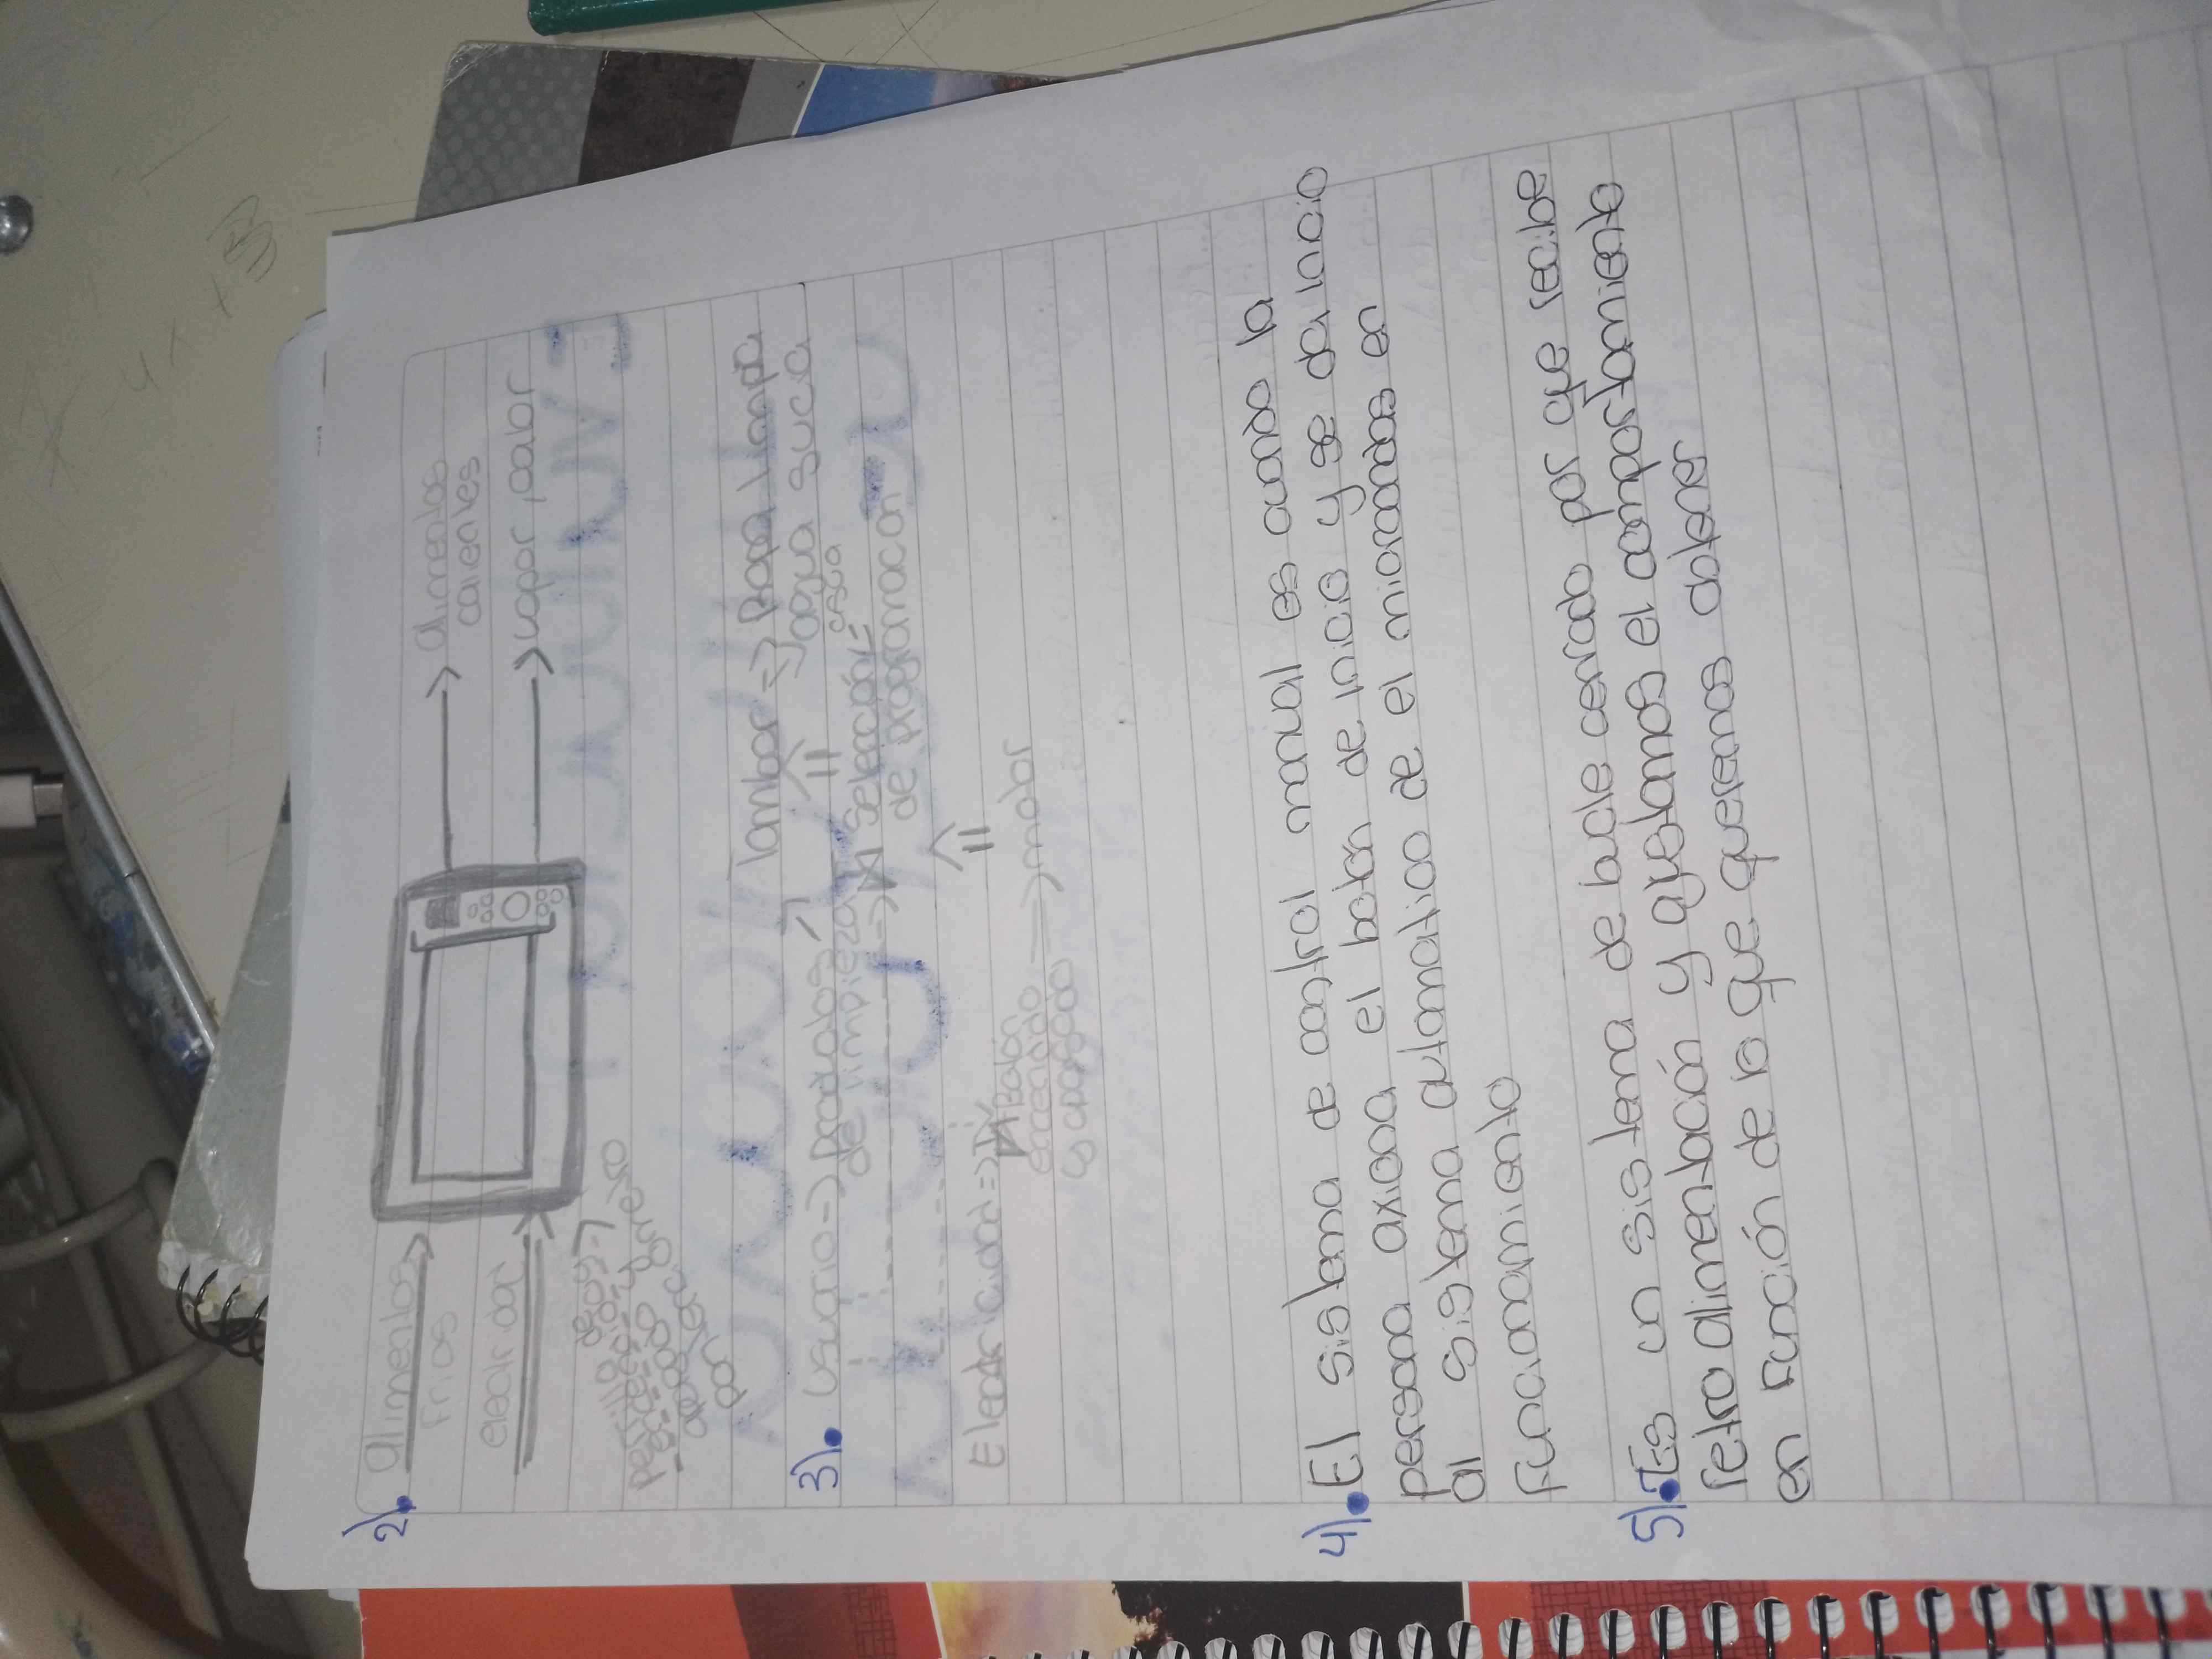 2). Alimentos
frios
alimentos
calientes
vapor, calor
perilla de
apagado
3). usuario → productos
de limpieza
tambor → Ropa limpia
→ agua suca
→ selección
de programacon
Electricidad → Boton
encendido → motor
apagado
4). El sistema de control manual es cuando la
persona axiona el botón de inicio y se da inicio
al sistema automatico de el microondas en
funcionamiento
5). Es un sistema de bucle cerrado por que recibe
retro alimentación y ajustamos el comportamiento
en función de lo que queremos obtener